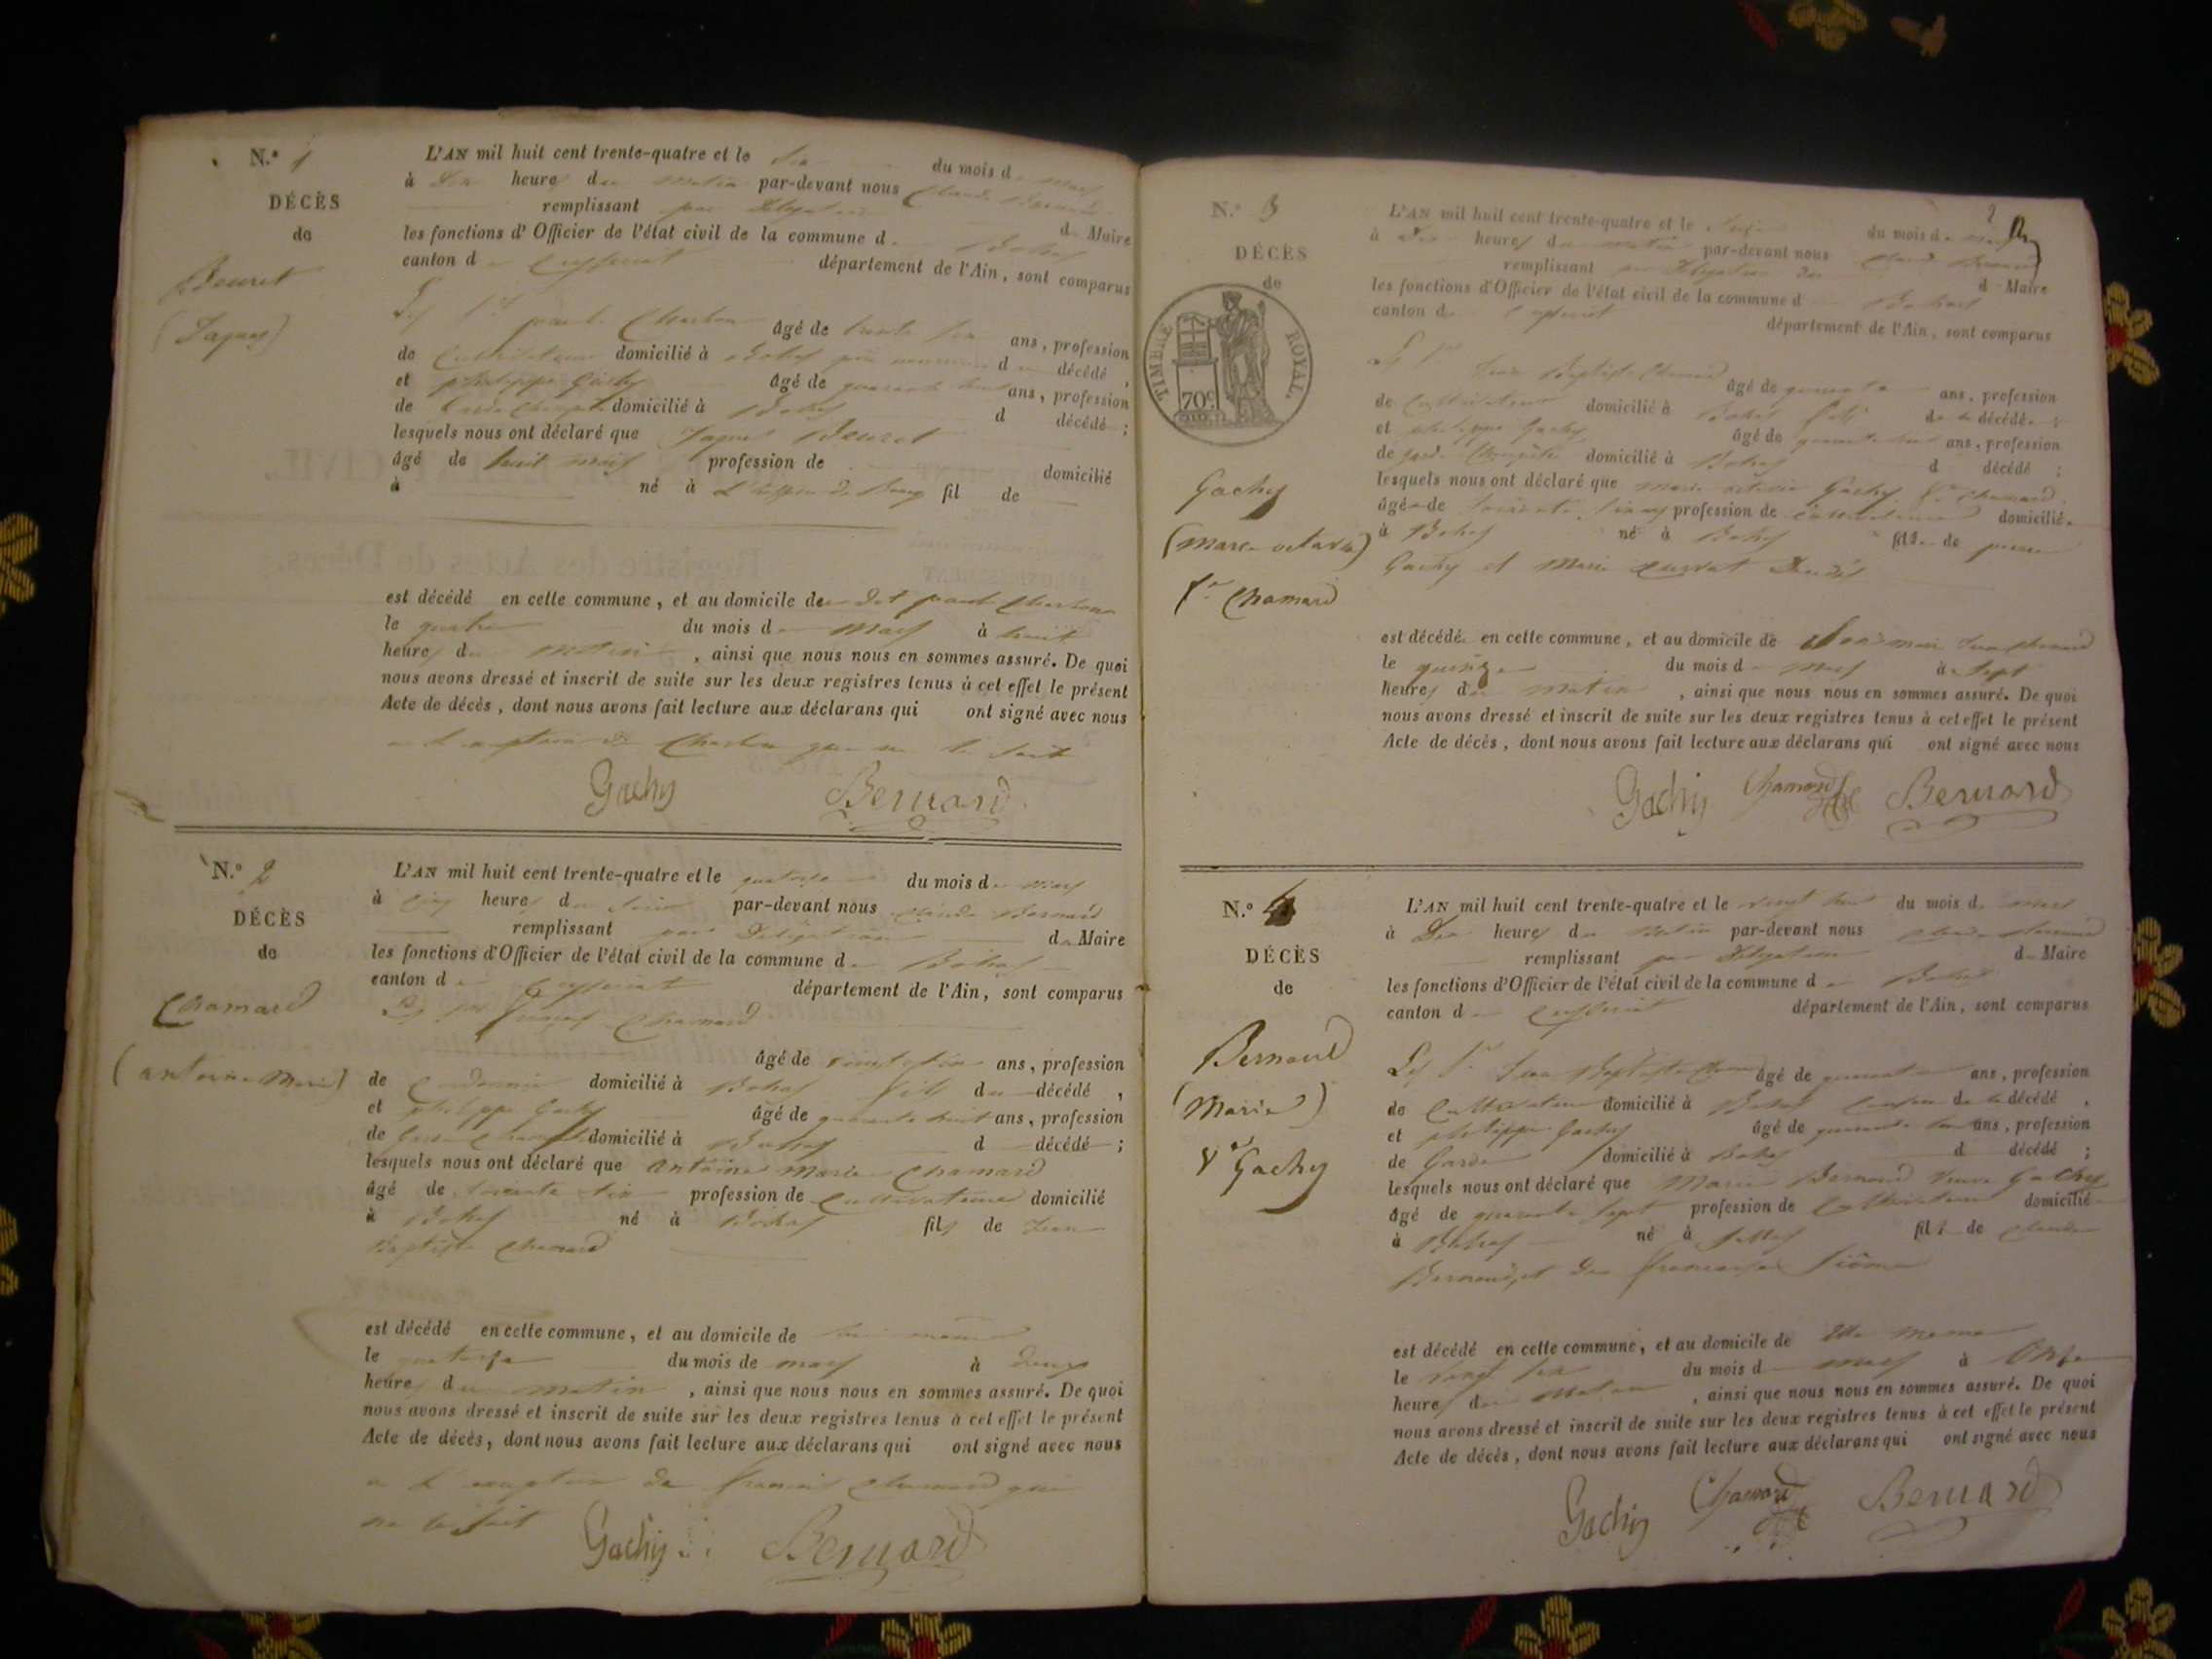 N.° 1
DÉCÈS
de
Beuret
(Jaques)
L'AN mil huit cent trente-quatre et le du mois de mars
à heures du matin par-devant nous Claude Bernard
remplissant par Délégation de Maire
les fonctions d'Officier de l'état civil de la commune de Bohas
canton de Ceyzeriat département de l'Ain, sont comparus
Les Srs Charbon âgé de trente ans, profession
de Cultivateur domicilié à Bohas père nourricier du décédé,
et philippe Gachy âgé de quarante huit ans, profession
de Garde Champêtre domicilié à Bohas d décédé;
lesquels nous ont déclaré que Jaques Beuret
âgé de huit mois profession de domicilié
à né à L'hospice de Bourg fil de
est décédé en cette commune, et au domicile du dit Charbon
le quatre du mois de Mars à huit
heures du matin, ainsi que nous nous en sommes assuré. De quoi
nous avons dressé et inscrit de suite sur les deux registres tenus à cet effet le présent
Acte de décès, dont nous avons fait lecture aux déclarans qui ont signé avec nous
a L'exception de Charbon qui ne le sait
Gachy Bernard
N.° 2
DÉCÈS
de
Chamard
(antoine Marie)
L'AN mil huit cent trente-quatre et le quatorze du mois de mars
à cinq heures du soir par-devant nous Claude Bernard
remplissant par Délégation de Maire
les fonctions d'Officier de l'état civil de la commune de Bohas
canton de Ceyzeriat département de l'Ain, sont comparus
Les Srs françois Chamard
âgé de ans, profession
de Cordonnier domicilié à Bohas fils du décédé,
et philippe Gachy âgé de quarante huit ans, profession
de Garde Champêtre domicilié à Bohas d décédé;
lesquels nous ont déclaré que antoine Marie Chamard
âgé de soixante profession de Cultivateur domicilié
à Bohas né à Bohas fils de Jean
Baptiste Chamard
est décédé en cette commune, et au domicile de lui même
le quatorze du mois de mars à deux
heures du matin, ainsi que nous nous en sommes assuré. De quoi
nous avons dressé et inscrit de suite sur les deux registres tenus à cet effet le présent
Acte de décès, dont nous avons fait lecture aux déclarans qui ont signé avec nous
a L'exception de françois Chamard qui
ne le sait
Gachy Bernard
2
N.° 3
DÉCÈS
de
TIMBRE ROYAL.
70c.
Gachy
(Marie octavie)
Ve Chamard
L'AN mil huit cent trente-quatre et le seize du mois de mars
à heures du matin par-devant nous Claude Bernard
remplissant par Délégation de Maire
les fonctions d'Officier de l'état civil de la commune d Bohas
canton de Ceyzeriat département de l'Ain, sont comparus
Les Srs Jean Baptiste Chamard âgé de quarante ans, profession
de Cultivateur domicilié à Bohas fils de la décédée
et philippe Gachy âgé de quarante huit ans, profession
de garde Champêtre domicilié à Bohas d décédé;
lesquels nous ont déclaré que Marie octavie Gachy Ve Chamard
âgée de soixante profession de Cultivateur domiciliée
à Bohas né à Bohas fille de pierre
Gachy et Marie Cuvrat
est décédée en cette commune, et au domicile de Jean Chamard
le quinze du mois de mars à sept
heures du matin, ainsi que nous nous en sommes assuré. De quoi
nous avons dressé et inscrit de suite sur les deux registres tenus à cet effet le présent
Acte de décès, dont nous avons fait lecture aux déclarans qui ont signé avec nous
Gachy Chamard Bernard
N.° 4
DÉCÈS
de
Bernard
(Marie)
Ve Gachy
L'AN mil huit cent trente-quatre et le vingt du mois de mars
à heures du matin par-devant nous Claude Bernard
remplissant par Délégation de Maire
les fonctions d'Officier de l'état civil de la commune de Bohas
canton de Ceyzeriat département de l'Ain, sont comparus
Les Srs Jean Baptiste Chamard âgé de quarante ans, profession
de Cultivateur domicilié à Bohas Cousin de la décédé,
et philippe Gachy âgé de quarante huit ans, profession
de Garde domicilié à Bohas d décédé;
lesquels nous ont déclaré que Marie Bernard Veuve Gachy
âgé de quarante sept profession de Cultivateur domicilié
à Bohas né à fille de Claude
Bernard et de françoise
est décédé en cette commune, et au domicile de Elle même
le vingt du mois de mars à onze
heures du Matin, ainsi que nous nous en sommes assuré. De quoi
nous avons dressé et inscrit de suite sur les deux registres tenus à cet effet le présent
Acte de décès, dont nous avons fait lecture aux déclarans qui ont signé avec nous
Gachy Chamard Bernard